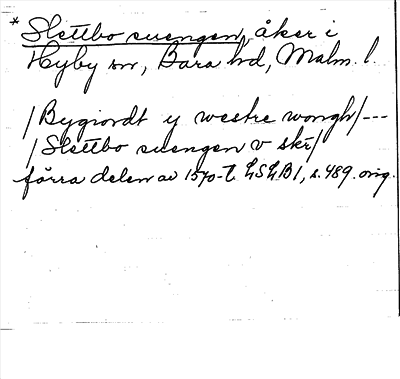 * Slettbo suengen, åker i
Hyby sn, Bara hd, Malm. l.
/Bygiordt y westre wongh/---
/Slettbo suengen v skr/
förra delen av 1570-t. LSLB1, s. 489. orig.